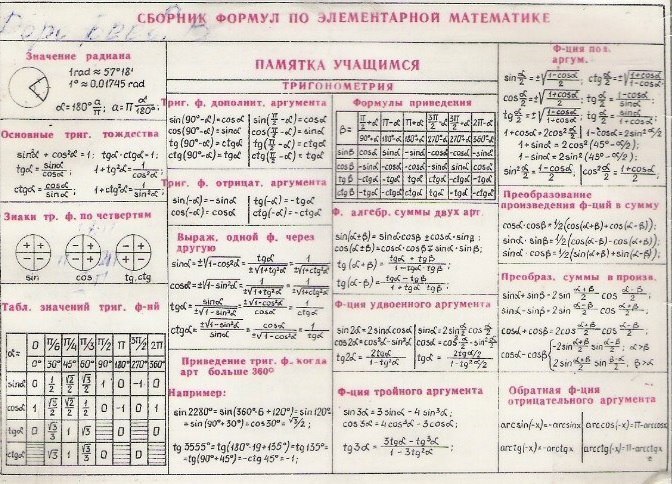 СБОРНИК ФОРМУЛ ПО ЭЛЕМЕНТАРНОЙ МАТЕМАТИКЕ
ПАМЯТКА УЧАЩИМСЯ
ТРИГОНОМЕТРИЯ
Значение радиана
1 rad ≈ 57°18'
1° ≈ 0.01745 rad
α=180° a/π; a=π α/180°
Основные триг. тождества
sin²α + cos²α = 1; tgα·ctgα=1;
tgα= sinα/cosα; 1+tg²α= 1/cos²α;
ctgα= cosα/sinα; 1+ctg²α= 1/sin²α
Знаки тр. ф. по четвертям
+ + − −
− + − +
− + + −
sin cos tg, ctg
Табл. значений триг. ф-ий
α= 0 π/6 π/4 π/3 π/2 π 3π/2 2π
0° 30° 45° 60° 90° 180° 270° 360°
sinα 0 1/2 √2/2 √3/2 1 0 -1 0
cosα 1 √3/2 √2/2 1/2 0 -1 0 1
tgα 0 √3/3 1 √3 0 0
ctgα √3 1 √3/3 0 0
Триг. ф. дополнит. аргумента
sin(90°-α)=cosα sin(π/2-α)=cosα
cos(90°-α)=sinα cos(π/2-α)=sinα
tg(90°-α)=ctgα tg(π/2-α)=ctgα
ctg(90°-α)=tgα ctg(π/2-α)=tgα
Триг. ф. отрицат. аргумента
sin(-α)=-sinα tg(-α)=-tgα
cos(-α)=cosα ctg(-α)=-ctgα
Выраж. одной ф. через
другую
sinα=±√1-cos²α= tgα/±√1+tg²α = 1/±√1+ctg²α
cosα=±√1-sin²α= 1/±√1+tg²α =
tgα= sinα/±√1-sin²α = ±√1-cos²α/cosα = 1/ctgα
ctgα= ±√1-sin²α/sinα = cosα/±√1-cos²α = 1/tgα
Приведение триг. ф. когда
арг больше 360°
Например:
sin 2280°=sin(360°·6+120°)=sin120°
=sin(90°+30°)=cos30°=√3/2;
tg 3555°=tg(180°·19+135°)=tg135°=
=tg(90°+45°)=-ctg 45°=-1;
Формулы приведения
β= π/2+α π-α π+α 3π/2-α 3π/2+α 2π-α
90°+α 180°-α 180°+α 270°-α 270°+α 360°-α
sinβ cosα sinα -sinα -cosα -cosα -sinα
cosβ -sinα -cosα -cosα -sinα sinα cosα
tgβ -ctgα -tgα tgα ctgα -ctgα -tgα
ctgβ -tgα -ctgα ctgα tgα -tgα -ctgα
Ф. алгебр. суммы двух арг.
sin(α±β)=sinα·cosβ±cosα·sinβ;
cos(α±β)=cosα·cosβ∓sinα·sinβ;
tg(α+β)= tgα+tgβ/1-tgα·tgβ;
tg(α-β)= tgα-tgβ/1+tgα·tgβ
Ф-ция удвоенного аргумента
sin2α=2sinα·cosα; sinα=2sin α/2 cos α/2
cos2α=cos²α-sin²α; cosα=cos² α/2-sin² α/2
tg2α= 2tgα/1-tg²α; tgα= 2tgα/2/1-tg²α/2
Ф-ция тройного аргумента
sin3α=3sinα-4sin³α;
cos3α=4cos³α-3cosα;
tg3α= 3tgα-tg³α/1-3tg²α
Ф-ция пол.
аргум.
sin α/2=±√1-cosα/2; ctg α/2=±√1+cosα/1-cosα
cos α/2=±√1+cosα/2; tg α/2= 1-cosα/sinα
tg α/2=±√1-cosα/1+cosα; tg α/2= sinα/1+cosα
1+cosα=2cos² α/2 1-cosα=2sin² α/2;
1+sinα=2cos²(45°-α/2);
1-sinα=2sin²(45°-α/2);
sin² α/2= 1-cosα/2 cos² α/2= 1+cosα/2
Преобразование
произведения ф-ций в сумму
cosα·cosβ=1/2(cos(α+β)+cos(α-β));
sinα·sinβ=1/2(cos(α-β)-cos(α+β));
sinα·cosβ=1/2(sin(α+β)+sin(α-β));
Преобраз. суммы в произв.
sinα+sinβ=2sin α+β/2 cos α-β/2;
sinα-sinβ=2sin α-β/2 cos α+β/2;
cosα+cosβ=2cos α+β/2 cos α-β/2;
cosα-cosβ -2sin α+β/2 sin α-β/2;
2sin α+β/2 sin β-α/2, β>α
Обратная ф-ция
отрицательного аргумента
arcsin(-x)=-arcsinx arccos(-x)=π-arccosx
arctg(-x)=-arctgx arcctg(-x)=π-arcctgx